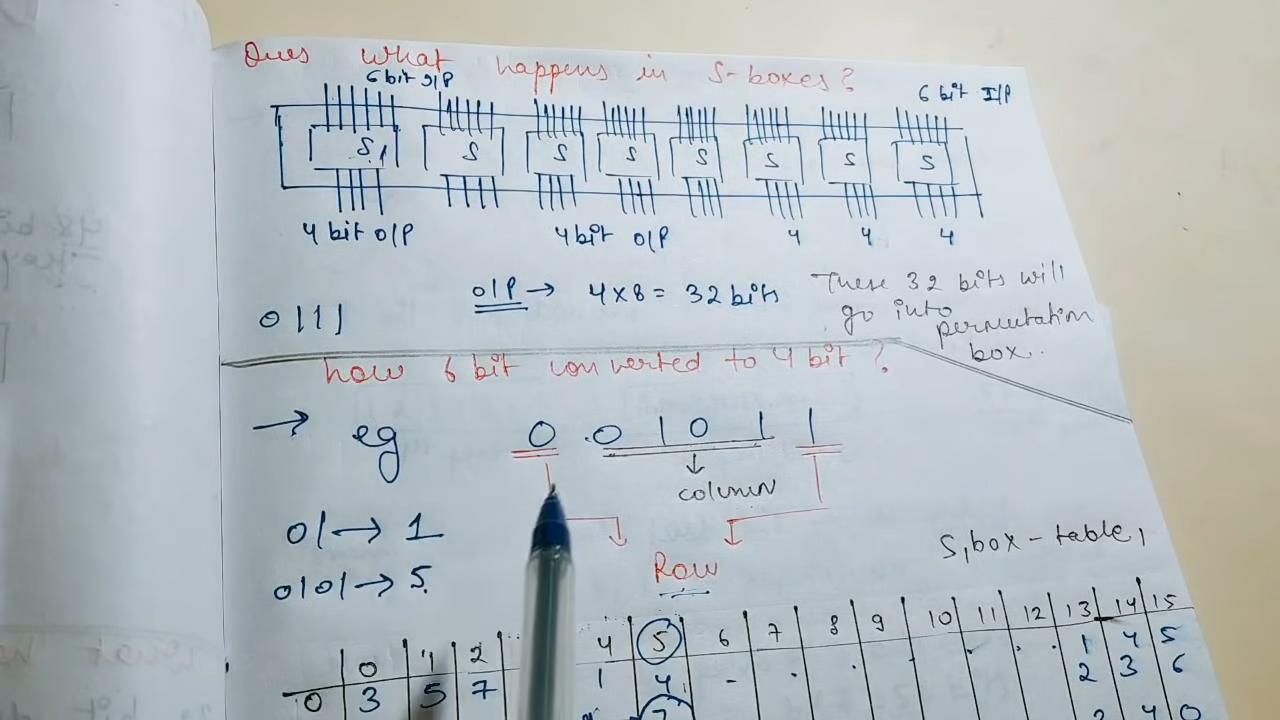 Ques What happens in S-boxes?
6 bit I/P
6 bit I/P
S1 S S S S S S S
4 bit O/P 4 bit O/P 4 4 4
O/P → 4 x 8 = 32 bits
These 32 bits will
go into
permutation
box.
0111
how 6 bit converted to 4 bit?
→ eg 0 0 1 0 1 1
column
01 → 1
0101 → 5.
Row
S1 box-table,
0 1 2 4 5 6 7 8 9 10 11 12 13 14 15
0 3 5 7 1 4 - . . . . . . 1 4 5
2 3 6
4 0